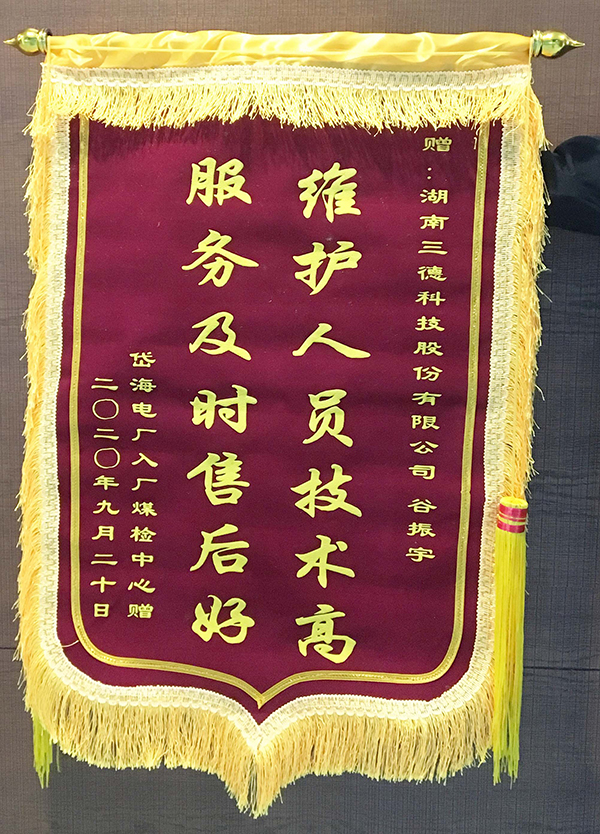 赠：湖南三德科技股份有限公司 谷振宇
维护人员技术高
服务及时售后好
岱海电厂入厂煤检中心赠
二〇二〇年九月二十日